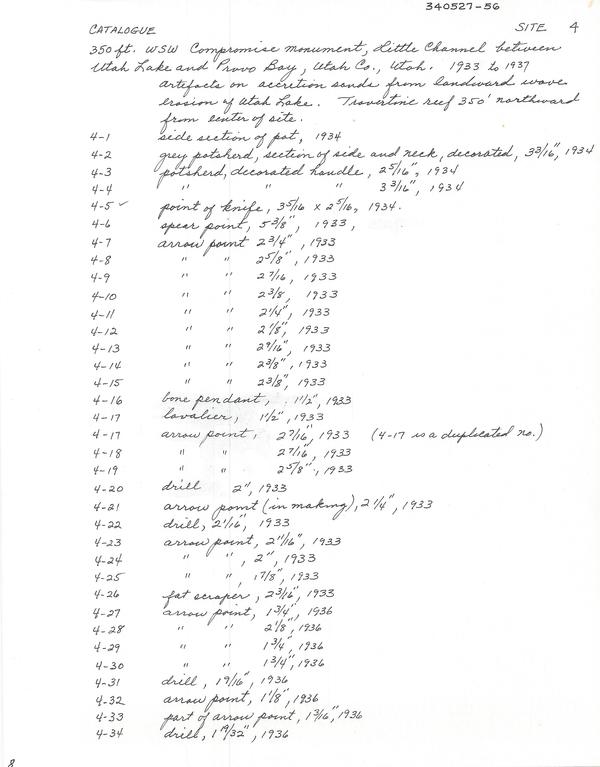 340527-56
CATALOGUE SITE 4
350 ft. WSW Compromise monument, Little Channel between
Utah Lake and Provo Bay, Utah Co., Utah. 1933 to 1937
artefacts on accretion sands from landward wave
erosion of Utah Lake. Travertine reef 350' northward
from center of site.
4-1 side section of pot, 1934
4-2 grey potsherd, section of side and neck, decorated, 3 3/16", 1934
4-3 potsherd, decorated handle, 2 5/16", 1934
4-4 " " " 3 3/16", 1934
4-5 ✓ point of knife, 3 5/16 x 2 5/16, 1934.
4-6 spear point, 5 3/8", 1933,
4-7 arrow point 2 3/4", 1933
4-8 " " 2 5/8", 1933
4-9 " " 2 7/16, 1933
4-10 " " 2 3/8, 1933
4-11 " " 2 1/4", 1933
4-12 " " 2 1/8", 1933
4-13 " " 2 9/16", 1933
4-14 " " 2 3/8", 1933
4-15 " " 2 3/8", 1933
4-16 bone pendant, 1 1/2", 1933
4-17 lavalier, 1 1/2", 1933
4-17 arrow point, 2 7/16", 1933 (4-17 is a duplicated no.)
4-18 " " 2 7/16", 1933
4-19 " " 2 5/8", 1933
4-20 drill 2", 1933
4-21 arrow point (in making), 2 1/4", 1933
4-22 drill, 2 1/16", 1933
4-23 arrow point, 2 11/16", 1933
4-24 " ", 2", 1933
4-25 " ", 1 7/8", 1933
4-26 fat scraper, 2 3/16", 1933
4-27 arrow point, 1 3/4", 1936
4-28 " " 2 1/8", 1936
4-29 " " 1 3/4", 1936
4-30 " " 1 3/4", 1936
4-31 drill, 1 9/16", 1936
4-32 arrow point, 1 1/8", 1936
4-33 part of arrow point, 1 3/16", 1936
4-34 drill, 1 19/32", 1936
8